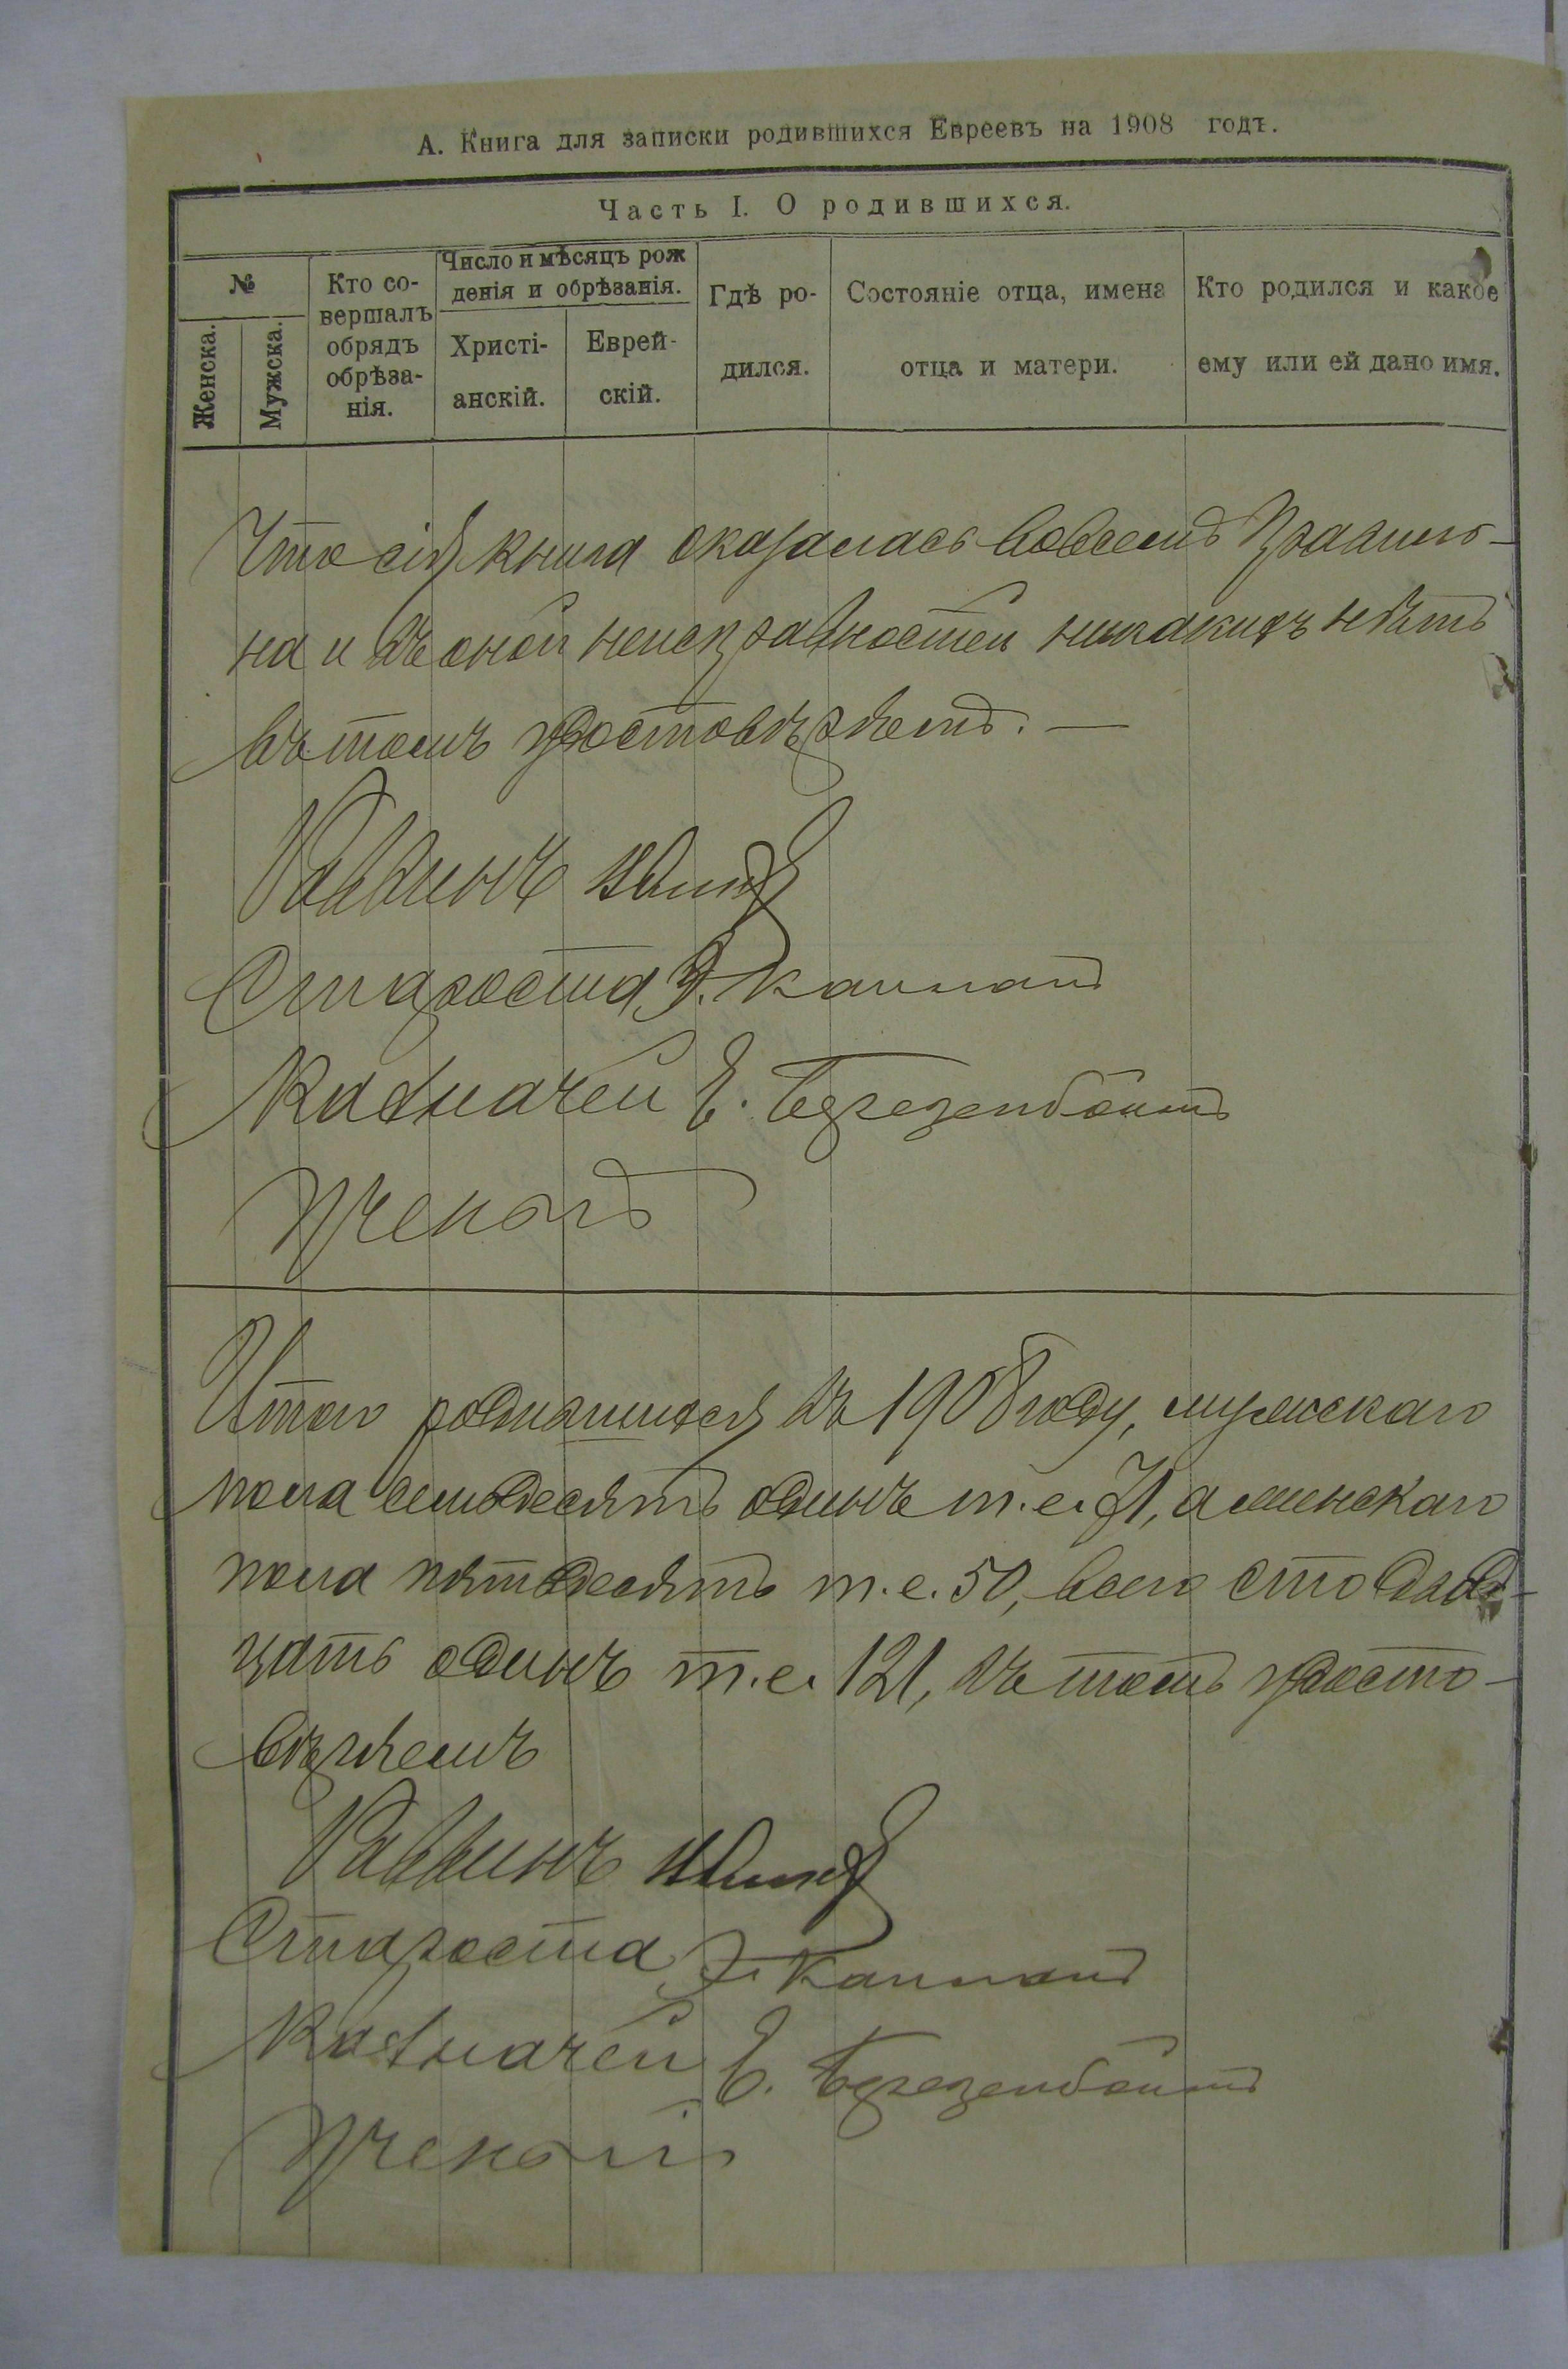 А. Книга для записки родившихся Евреевъ на 1908 годъ.
Часть I. О родившихся.
№
Женска.
Мужска.
Кто со-
вершалъ
обрядъ
обрѣза-
нія.
Число и мѣсяцъ рож
денія и обрѣзанія.
Христі-
анскій.
Еврей-
скій.
Гдѣ ро-
дился.
Состояніе отца, имена
отца и матери.
Кто родился и какое
ему или ей дано имя.
Что сія книга оказалась вовсемъ правиль-
на и въ оной неисправностей никакихъ нѣтъ
въ томъ удостовѣряемъ. —
Раввинъ
Староста Э. Капланъ
Казначей Е. Березенбоимъ
Итого родившихся въ 1908 году, мужскаго
пола семьдесятъ одинъ т.е. 71, а женскаго
пола пятьдесятъ т.е. 50, всего сто двад-
цать одинъ т.е. 121, въ томъ удосто-
вѣряемъ
Раввинъ
Староста Э. Капланъ
Казначей Е. Березенбоимъ